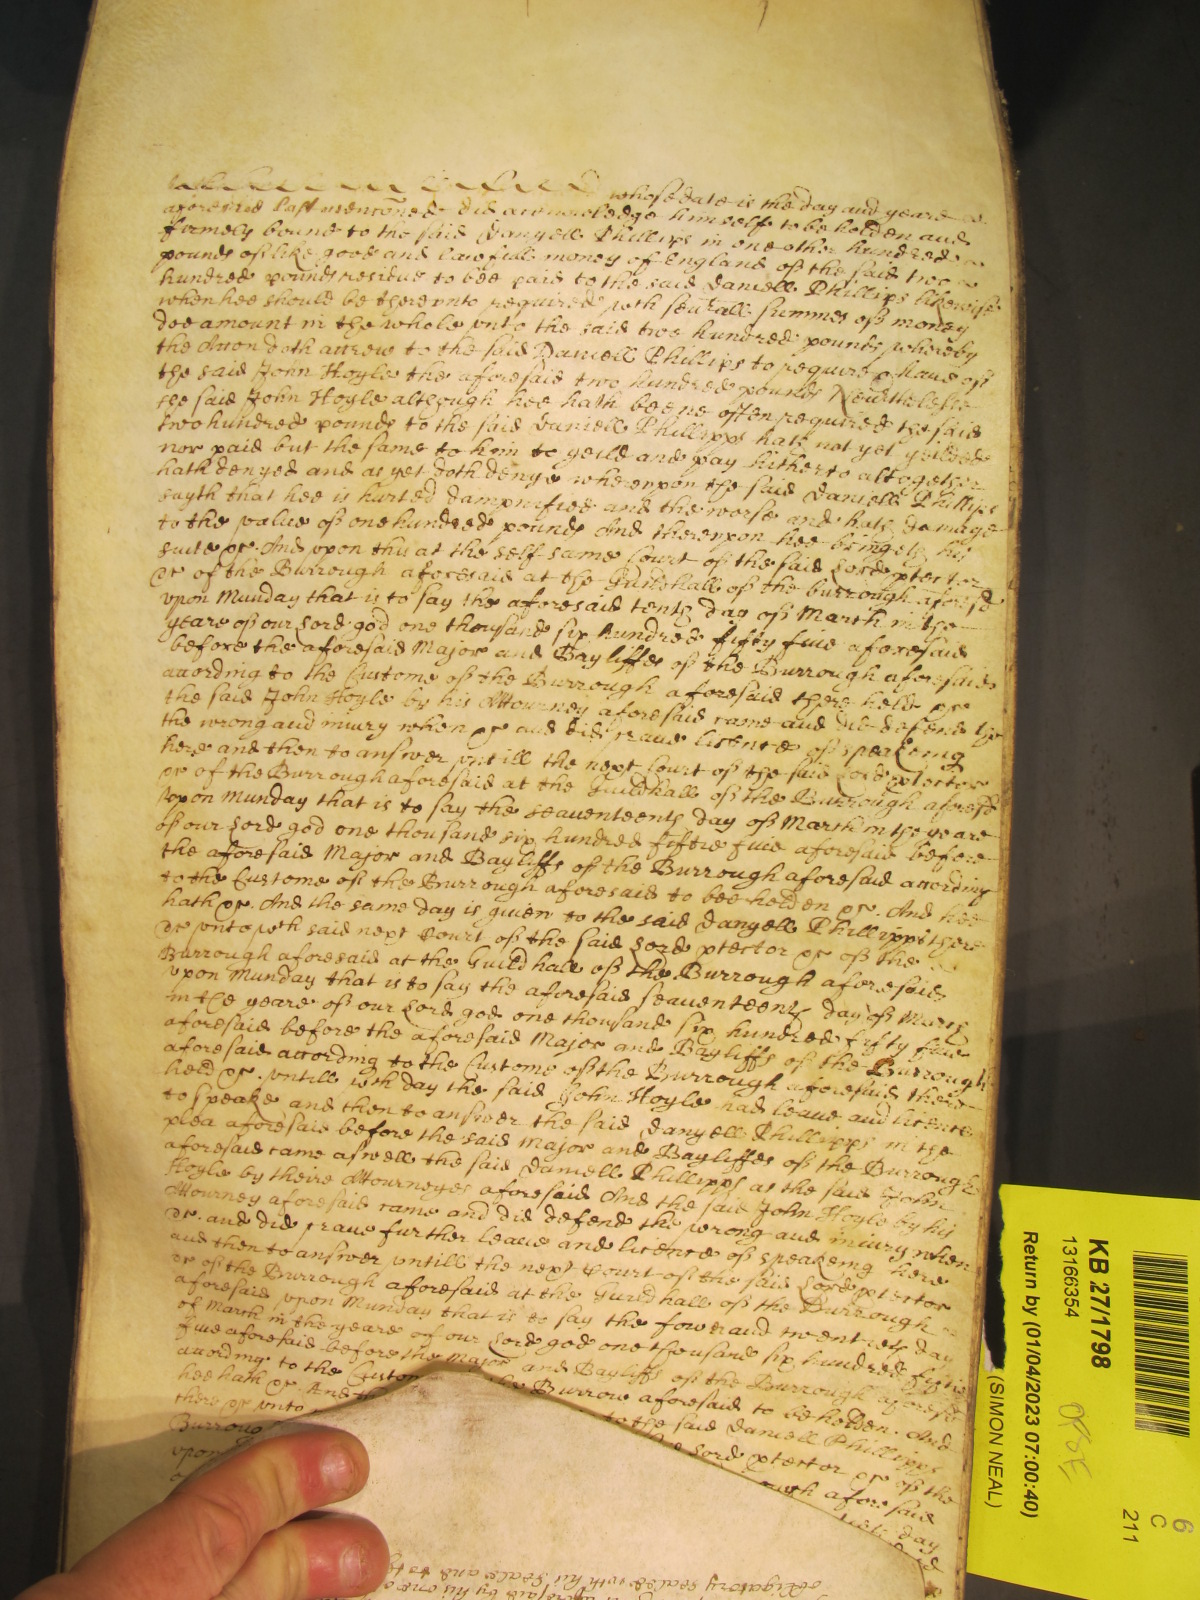 whose date is the day and yeare
aforesaid last mentoned did acknowledge himselfe to be holden and
firmely bound to the said Danyell Phillips in one other hundred
pounds of like good and lawfull money of England of the said two
hundred pounds residue to bee paid to the said Daniell Phillips likewise
when hee should be thereunto required wch seurall summes of money
doe amount in the whole vnto the said two hundred pounds whereby
the Accon doth accrew to the said Daniell Phillips to require & haue of
the said John Hoyle the aforesaid two hundred pounds Neuerthelesse
the said John Hoyle although hee hath beene often required the said
two hundred pounds to the said Daniell Phillipps hath not yet yeilded
nor paid but the same to him to yeild and pay hitherto altogether
hath denyed and as yet doth denye wherevpon the said Daniell Phillips
sayth that hee is hurted dampnified and the worse and hath damage
to the value of one hundred pounds And therevpon hee bringeth his
suite &c. And vpon this at the self same Court of the said Lord ptector
&c of the Burrough aforesaid at the Guildhall of the burrough aforesd
vpon Munday that is to say the aforesaid tenth day of March in the
yeare of our Lord god one thousand six hundred fifty fiue aforesaid
before the aforesaid Major and Bayliffes of the Burrough aforesaid
according to the Custome of the Burrough aforesaid there held &c
the said John Hoyle by his Attourney aforesaid came and did defend the
the wrong and iniury when &c and did craue licence of speakeing
here and then to answer vntill the next Court of the said Lord ptector
&c of the Burrough aforesaid at the Guildhall of the Burrough aforesd
vpon Munday that is to say the seauenteenth day of March in the yeare
of our Lord god one thousand six hundred fiftie fiue aforesaid before
the aforesaid Major and Bayliffs of the Burrough aforesaid according
to the Custome of the Burrough aforesaid to bee holden &c. And hee
hath &c. And the same day is giuen to the said Danyell Phillipps there
&c vnto wch said next Court of the said Lord ptector &c of the
Burrough aforesaid at the Guildhall of the Burrough aforesaid
vpon Munday that is to say the aforesaid seauenteenth day of March
in the yeare of our Lord god one thousand six hundred fifty fiue
aforesaid before the aforesaid Major and Bayliffs of the Burrough
aforesaid according to the Custome of the Burrough aforesaid there
held &c. vntill wch day the said John Hoyle had leaue and licence
to speake and then to answer the said Danyell Phillipps in the
plea aforesaid before the said Major and Bayliffes of the Burrough
aforesaid came aswell the said Daniell Phillipps as the said John
Hoyle by theire Attourneyes aforesaid And the said John Hoyle by his
Attourney aforesaid came and did defend the wrong and iniury when
&c. and did craue further leaue and licence of speakeing here
and then to answer vntill the next Court of the said Lord ptector
&c of the Burrough aforesaid at the Guildhall of the Burrough
aforesaid vpon Munday that is to say the fower and twentieth day
of March in the yeare of our Lord god one thousand six hundred fiftie
fiue aforesaid before the Major and Bayliffs of the Burrough aforesd
according to the Custom Burrow aforesaid to be holden. And
hee hath &c. And to the said Daniell Phillipps
there &c vnto Lord ptector &c of the
Burroug aforesaid
vpon day
obligatory sealed with his seale and
KB 27/1798
13166354
Return by (01/04/2023 07:00:40)
(SIMON NEAL)
6
C
211